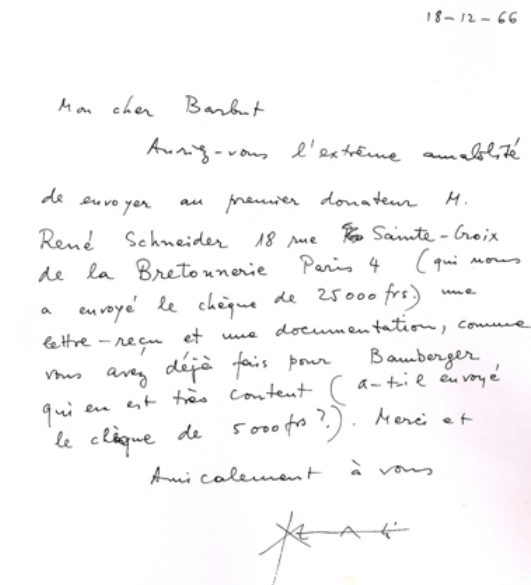 18-12-66
Mon cher Barbut
Auriez-vous l'extrême amabilité
de envoyer au premier donateur M.
René Schneider 18 rue Sainte-Croix
de la Bretonnerie Paris 4 (qui nous
a envoyé le chèque de 25000 frs.) une
lettre-reçu et une documentation, comme
vous avez déjà fais pour Bamberger
qui en est très content (a-t-il envoyé
le chèque de 5000 frs ?.). Merci et
Amicalement à vous